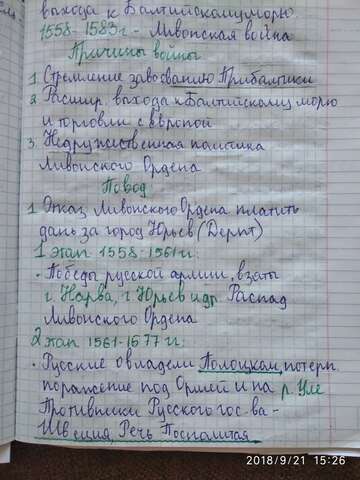 выхода к Балтийскому морю
1558-1583г - Ливонская война
Причины войны
1. Стремление завоеванию Прибалтики
2. Расшир. выхода к Балтийскому морю
и торговли с Европой
3. Недружественная политика
Ливонского Ордена
Повод
1 Отказ Ливонского Ордена платить
дань за город Юрьев (Дерпт)
1 этап 1558-1561 г:
• Победы русской армии, взяты
г. Нарва, г Юрьев и др. Распад
Ливонского Ордена
2 этап 1561-1577 г:
• Русские овладели Полоцком, потерп.
поражение под Оршей и на р. Уле
Противники Русского гос-ва -
Швеция, Речь Посполитая
2018/9/21 15:26